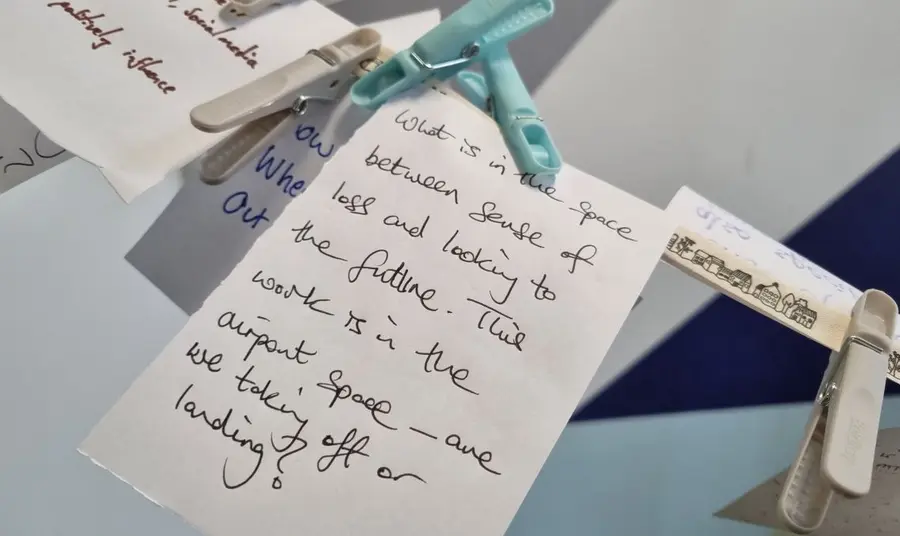 , Social media
positively influence
ow
Whe
Out
What is in the space
between sense of
loss and looking to
the future. This
work is in the
airport space – are
we taking off or
landing?